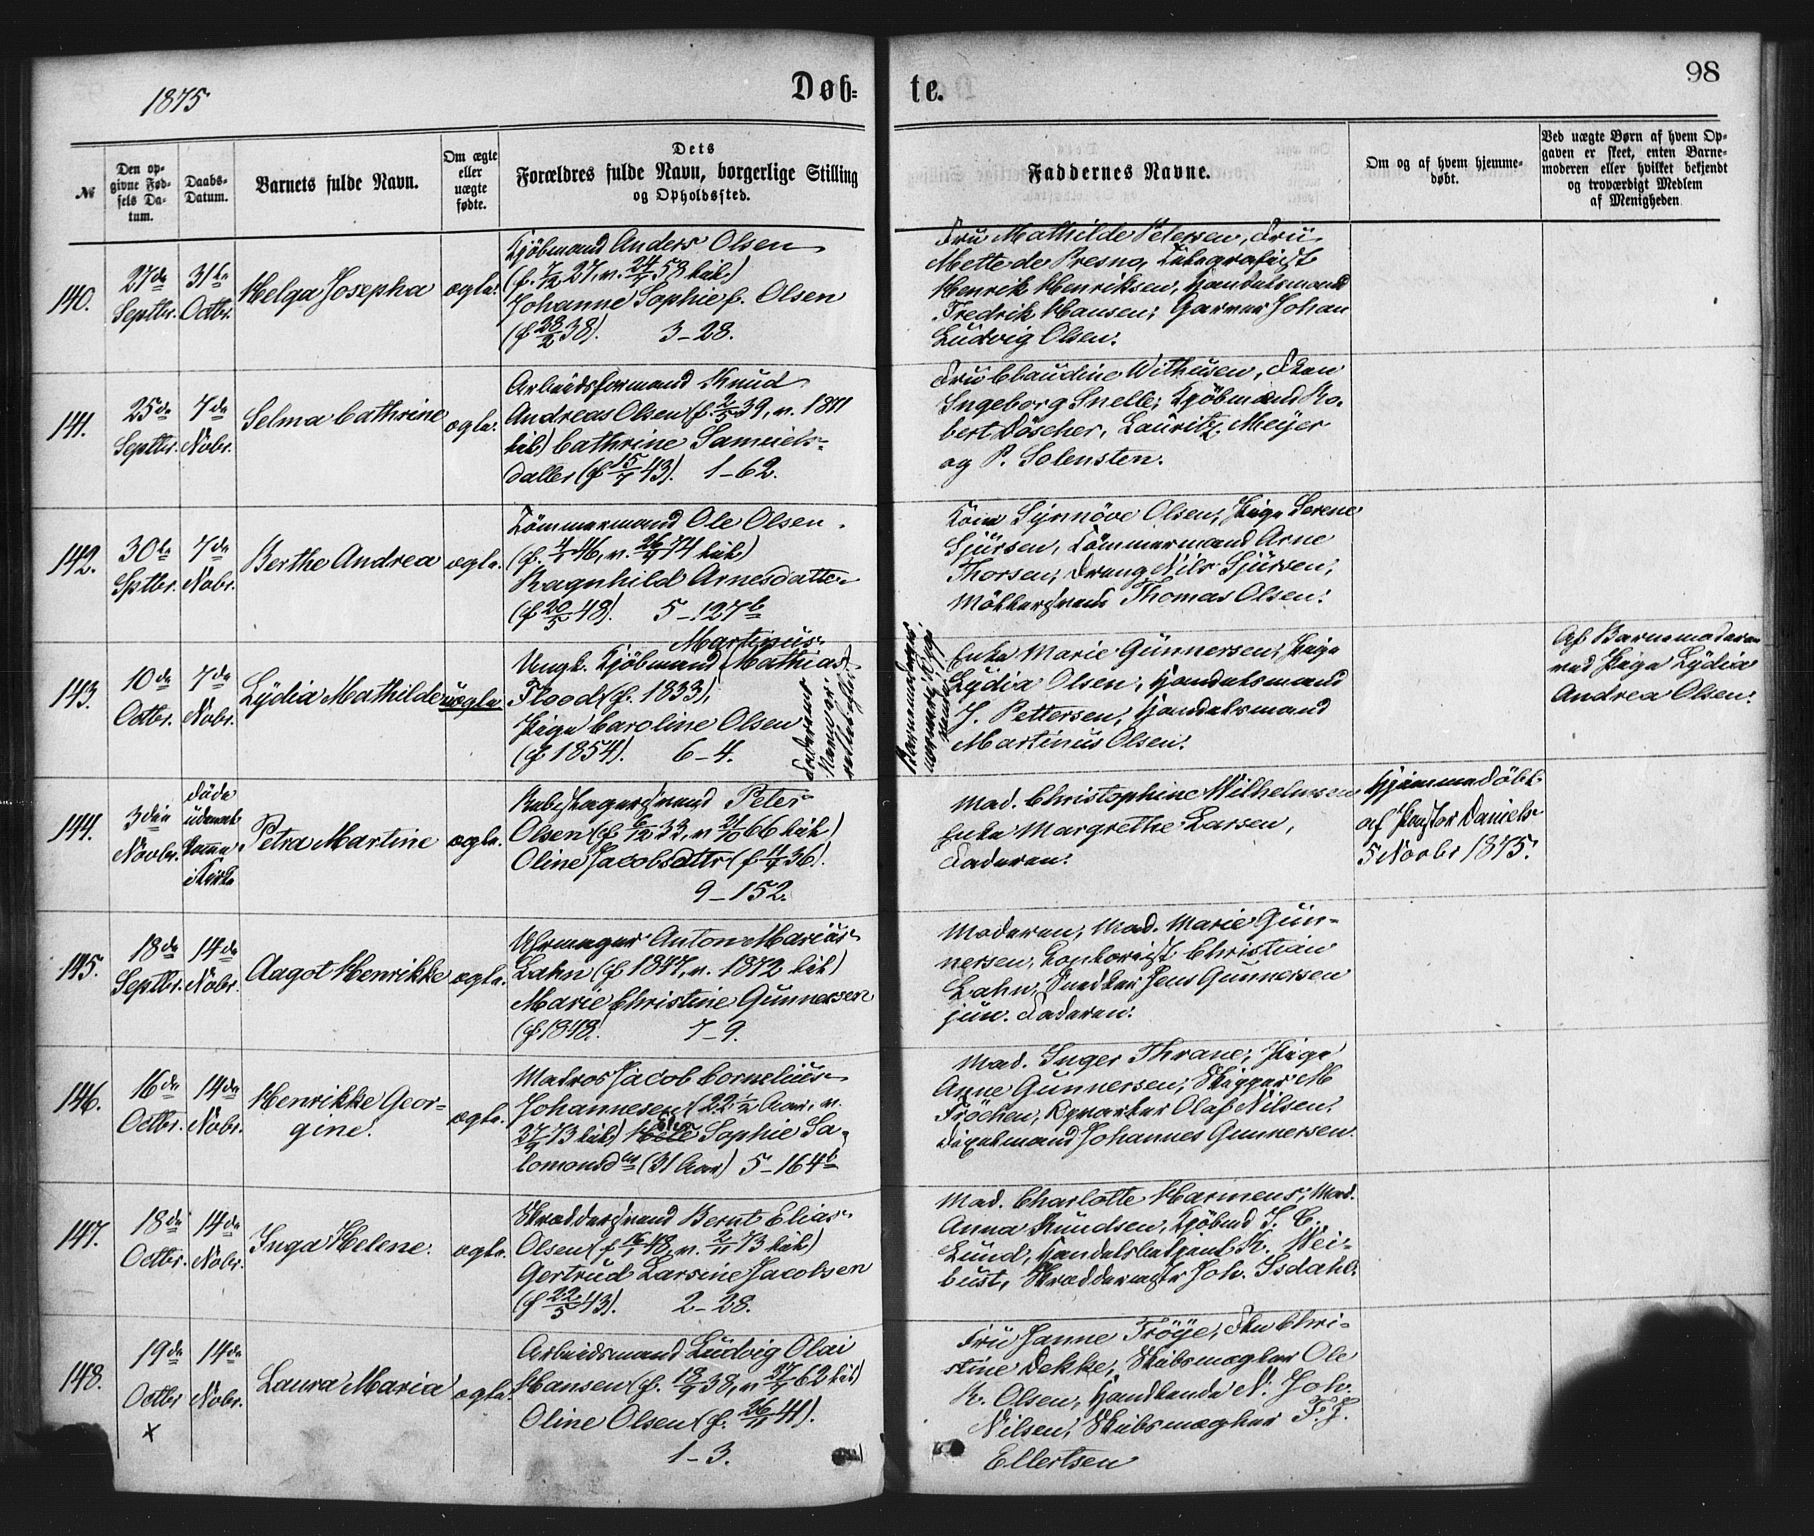 1875
Døb=
te.
98
№
Den op-
givne Fød-
sels Da-
tum.
Daabs-
Datum.
Barnets fulde Navn.
Om ægte
eller
uægte
fødte.
Dets
Forældres fulde Navn, borgerlige Stilling
og Opholdssted.
Faddernes Navne.
Om og af hvem hjemme-
døbt.
Ved uægte Børn af hvem Op-
gaven er skeet, enten Barne-
moderen eller hvilket bekjendt
og troværdigt Medlem
af Menigheden
140.
27de
Septbr.
31te
Octbr.
Helga Josepha
ægte.
Kjöbmand Anders Olsen
(f. 7/12 27, v. 24/1 58 kub)
Johanne Sophie f. Olsen
(f 28/2 38). 3–28.
Fru Mathilde Petersen, Fru
Mette de Presno, Telegrafist
Henrik Henriksen, Handelsmand
Fredrik Hansen; Garver Johan
Ludvig Olsen.
141.
25de
Septbr.
7de
Nobr.
Selma Cathrine
ægte.
Arbeidsformand Knud
Andreas Olsen (f. 2/5 39, v. 1811
kub) Cathrine Samuels-
datter (f 15/7 43). 1–62.
Fru Claudine Withusen, Frkn
Ingeborg Snelle; Kjöbmand Ro-
bert Döscher, Lauritz Meÿer
og P. Solensten.
142.
30te
Sptbr.
7de
Nobr.
Berthe Andrea
ægte.
Tömmermand Ole Olsen
(f. 4/7 46, v. 26/4 74 kub)
Ragnhild Arnesdatter
(f 20/5 48). 5–127b
Kone Synnöve Olsen; Pige Serene
Sjursen, Tömmermand Arne
Thorsen; Dreng Nils Sjursen;
Thomas Olsen.
143.
10de
Octbr.
7de
Nobr.
Lÿdia Mathilde
uægte
Martinus
Ungk. Kjöbmand Mathias
Flood (f. 1833),
Pige Caroline Olsen
(f. 1854). 6–4.
Faderens
Enke Marie Gunnersen; Pige
Lÿdia Olsen, Handelsmand
J. Pettersen, Handelsmand
Martinus Olsen.
Af Barnemoderen
ved Pige Lÿdia
Andrea Olsen.
144.
3die
Novbr.
döde
uden at
komme
i Kirke
Petra Martine
ægte.
Peter
Olsen (f 6/12 33, v 21/10 66 kub)
Oline Jacobsdatter (f 11/7 36).
9–152.
Mad. Christophine Wilhelmsen
Enke Margrethe Larsen,
Faderen.
Hjemmedöbt
af Pastor Daniels
5 Novbr 1875.
145.
18de
Septbr.
14de
Nobr.
Aagot Henrikke
ægte.
Uhrmager Anton Marius
Lahn (f 1847, v. 1872 kub)
Marie Christine Gunnersen
(f. 1848. 7–9.
Moderen; Mad. Marie Gun-
nersen, Kontorist Christian
Lahn, Snedker Jens Gunnersen
jun. Faderen.
146.
16de
Octbr.
14de
Nobr.
Henrikke Geor-
gine.
ægte.
Matros Jacob Cornelius
Johannesen (22 1/2 Aar, v.
73 kub) Sophie Sa-
lomonsdtr (31 Aar) 5–164b
Mad. Inger Thrane; Pige
Anne Gunnersen; Skipper M
Tröchen, Olaf Nilsen;
Johannes Gunnersen.
147.
18de
Octbr.
14de
Nobr.
Inga Helene.
ægte.
Skræddersvend Bernt Elias
Olsen (f 16/1 48, v. 2/11 73 kub)
Gertrud Larsine Jacobsen
(f 22/5 43). 2–28.
Mad. Charlotte Harmens; Mad.
Anna Knudsen; Kjöbmd J. C.
Lund, Handelsbetjent K. Nei-
bust, Skræddermstr Joh. Isdahl.
148.
19de
Octbr
×
14de
Nobr.
Laura Maria
ægte.
Arbeidsmand Ludvig Olai
Hansen (f. 18/9 38, v 27/7 62 kub)
Oline Olsen (f. 26/11 41).
1–3.
Fru Janne Tröÿe; Fru Chri-
stine Dekke; Skibsmægler Ole
K. Olsen, Handlende N. Joh.
Nilsen; Skibsmægler F. F.
Ellertsen